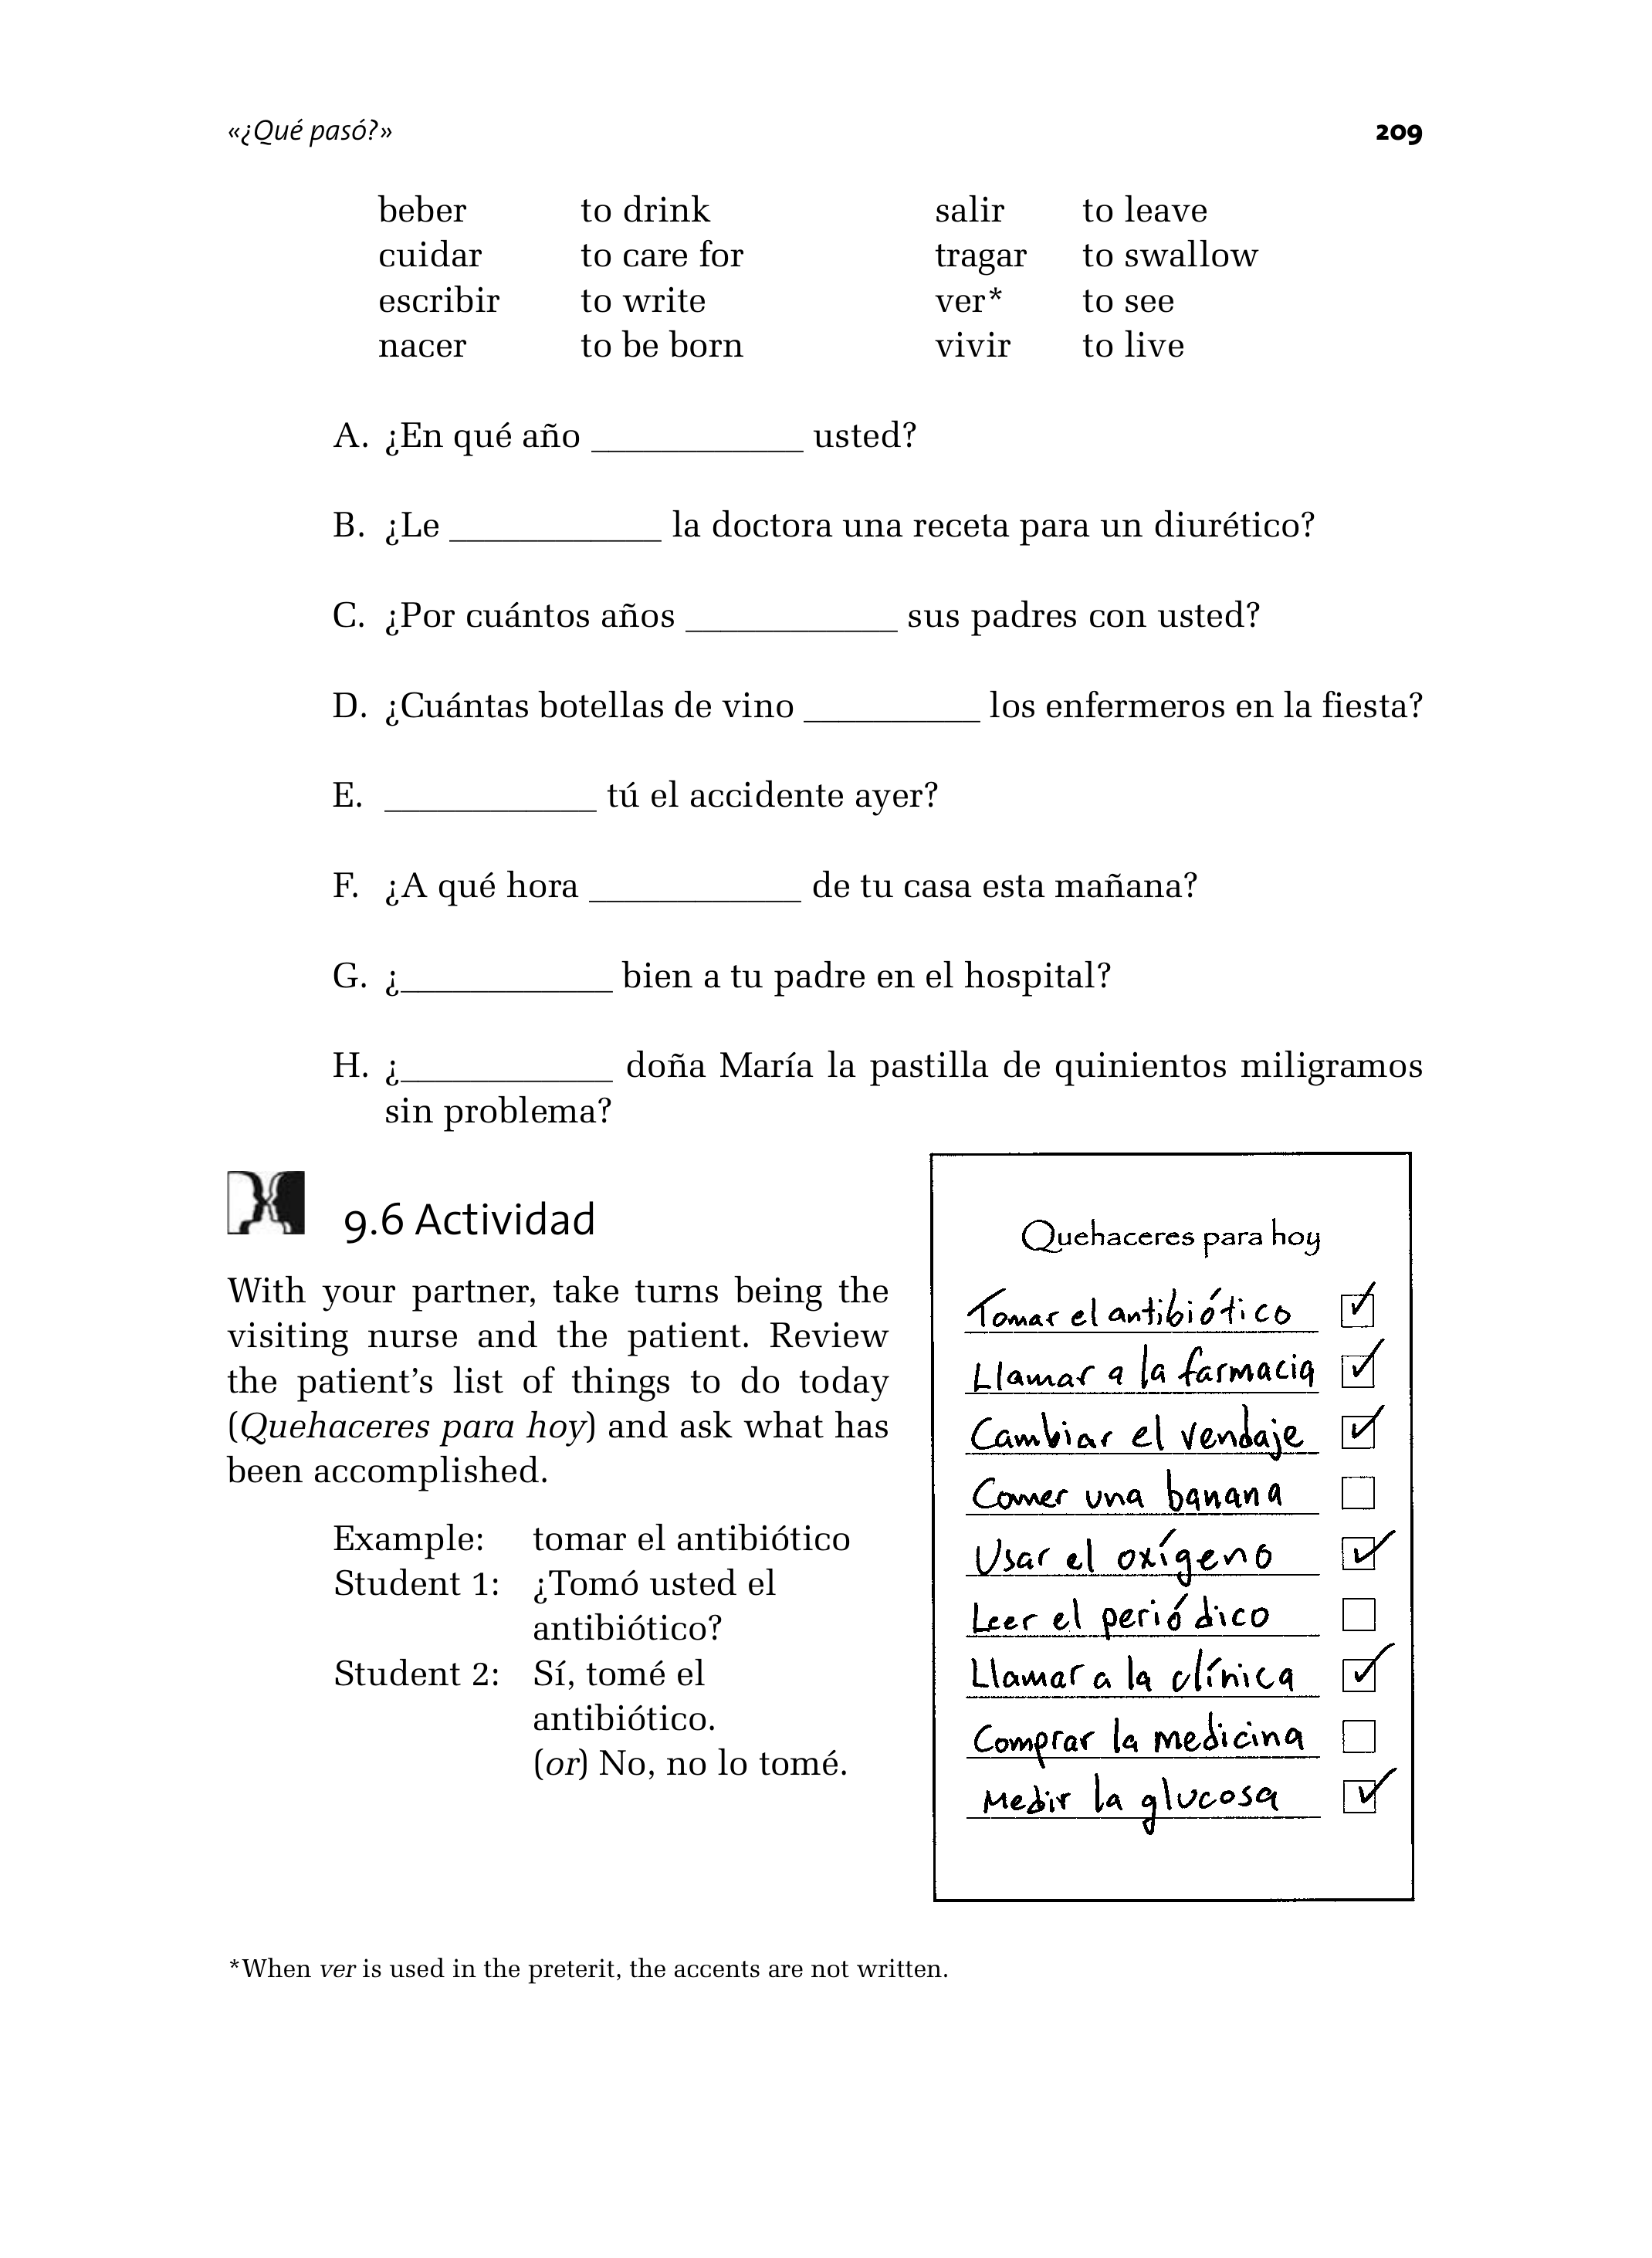 «¿Qué pasó?» 209
beber to drink salir to leave
cuidar to care for tragar to swallow
escribir to write ver* to see
nacer to be born vivir to live
A. ¿En qué año ____________ usted?
B. ¿Le ____________ la doctora una receta para un diurético?
C. ¿Por cuántos años ____________ sus padres con usted?
D. ¿Cuántas botellas de vino __________ los enfermeros en la fiesta?
E. ____________ tú el accidente ayer?
F. ¿A qué hora ____________ de tu casa esta mañana?
G. ¿____________ bien a tu padre en el hospital?
H. ¿____________ doña María la pastilla de quinientos miligramos
sin problema?
9.6 Actividad
With your partner, take turns being the
visiting nurse and the patient. Review
the patient's list of things to do today
(Quehaceres para hoy) and ask what has
been accomplished.
Example: tomar el antibiótico
Student 1: ¿Tomó usted el
antibiótico?
Student 2: Sí, tomé el
antibiótico.
(or) No, no lo tomé.
Quehaceres para hoy
Tomar el antibiótico
Llamar a la farmacia
Cambiar el vendaje
Comer una banana
Usar el oxígeno
Leer el periódico
Llamar a la clínica
Comprar la medicina
Medir la glucosa
*When ver is used in the preterit, the accents are not written.